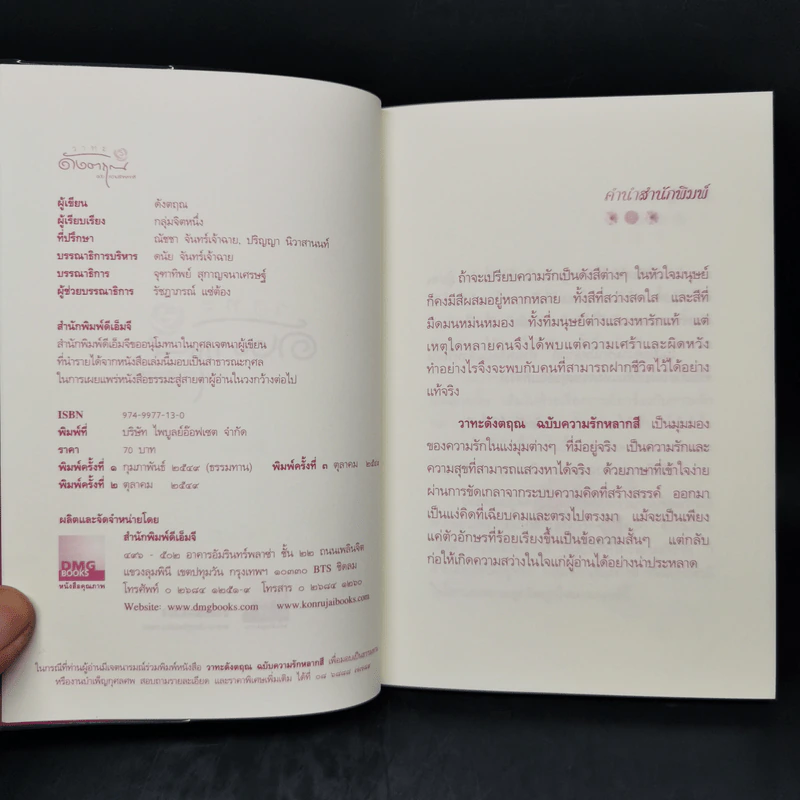 วาทะ
ดังตฤณ
ผู้เขียน ดังตฤณ
ผู้เรียบเรียง กลุ่มจิตหนึ่ง
ที่ปรึกษา ณัชชา จันทร์เจ้าฉาย, ปริญญา นิวาสานนท์
บรรณาธิการบริหาร ดนัย จันทร์เจ้าฉาย
บรรณาธิการ จุฑาทิพย์ สุกาญจนาเศรษฐ์
ผู้ช่วยบรรณาธิการ รัชฎาภรณ์ แซ่ต้อง
สำนักพิมพ์ดีเอ็มจี
สำนักพิมพ์ดีเอ็มจีขออนุโมทนาในกุศลเจตนาผู้เขียน
ที่นำรายได้จากหนังสือเล่มนี้มอบเป็นสาธารณะกุศล
ในการเผยแพร่หนังสือธรรมะสู่สายตาผู้อ่านในวงกว้างต่อไป
ISBN 974-9977-13-0
พิมพ์ที่ บริษัท ไพบูลย์อ๊อฟเซต จำกัด
ราคา 70 บาท
พิมพ์ครั้งที่ ๑ กุมภาพันธ์ ๒๕๔๙ (ธรรมทาน) พิมพ์ครั้งที่ ๓ ตุลาคม
พิมพ์ครั้งที่ ๒ ตุลาคม ๒๕๔๙
ผลิตและจัดจำหน่ายโดย
สำนักพิมพ์ดีเอ็มจี
๔๙๖ - ๕๐๒ อาคารอัมรินทร์พลาซ่า ชั้น ๒๒ ถนนเพลินจิต
แขวงลุมพินี เขตปทุมวัน กรุงเทพฯ ๑๐๓๓๐ BTS ชิดลม
โทรศัพท์ ๐ ๒๖๘๔ ๑๒๕๑-๙ โทรสาร ๐ ๒๖๘๔ ๑๒๖๐
Website: www.dmgbooks.com , www.konrujaibooks.com
DMG
BOOKS
หนังสือคุณภาพ
ในกรณีที่ท่านผู้อ่านมีเจตนารมณ์ร่วมพิมพ์หนังสือ วาทะดังตฤณ ฉบับความรักหลากสี
หรืองานบำเพ็ญกุศลศพ สอบถามรายละเอียด และราคาพิเศษเพิ่มเติม ได้ที่
คำนำสำนักพิมพ์
ถ้าจะเปรียบความรักเป็นดังสีต่างๆ ในหัวใจมนุษย์
ก็คงมีสีผสมอยู่หลากหลาย ทั้งสีที่สว่างสดใส และสีที่
มืดมนหม่นหมอง ทั้งที่มนุษย์ต่างแสวงหารักแท้ แต่
เหตุใดหลายคนจึงได้พบแต่ความเศร้าและผิดหวัง
ทำอย่างไรจึงจะพบกับคนที่สามารถฝากชีวิตไว้ได้อย่าง
แท้จริง
วาทะดังตฤณ ฉบับความรักหลากสี เป็นมุมมอง
ของความรักในแง่มุมต่างๆ ที่มีอยู่จริง เป็นความรักและ
ความสุขที่สามารถแสวงหาได้จริง ด้วยภาษาที่เข้าใจง่าย
ผ่านการขัดเกลาจากระบบความคิดที่สร้างสรรค์ ออกมา
เป็นแง่คิดที่เฉียบคมและตรงไปตรงมา แม้จะเป็นเพียง
แค่ตัวอักษรที่ร้อยเรียงขึ้นเป็นข้อความสั้นๆ แต่กลับ
ก่อให้เกิดความสว่างในใจแก่ผู้อ่านได้อย่างน่าประหลาด